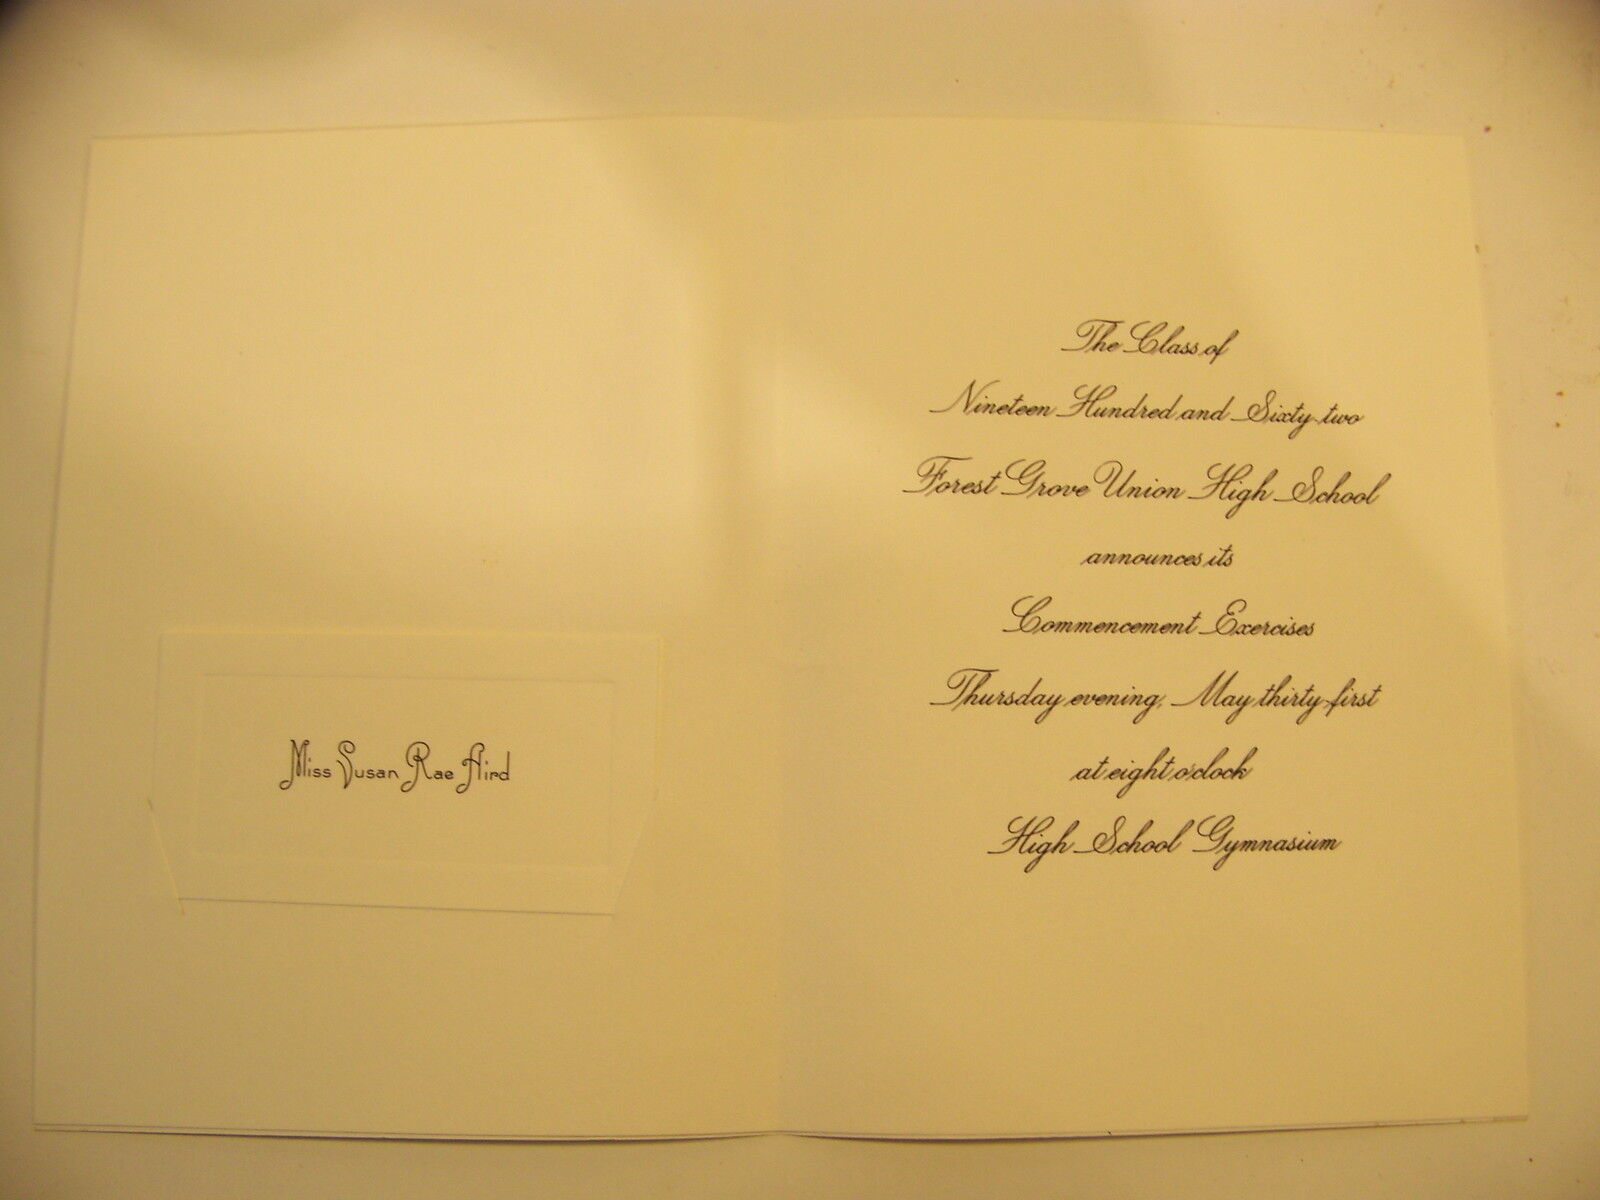 Miss Susan Rae Aird
The Class of
Nineteen Hundred and Sixty-two
Forest Grove Union High School
announces its
Commencement Exercises
Thursday evening, May thirty-first
at eight o'clock
High School Gymnasium